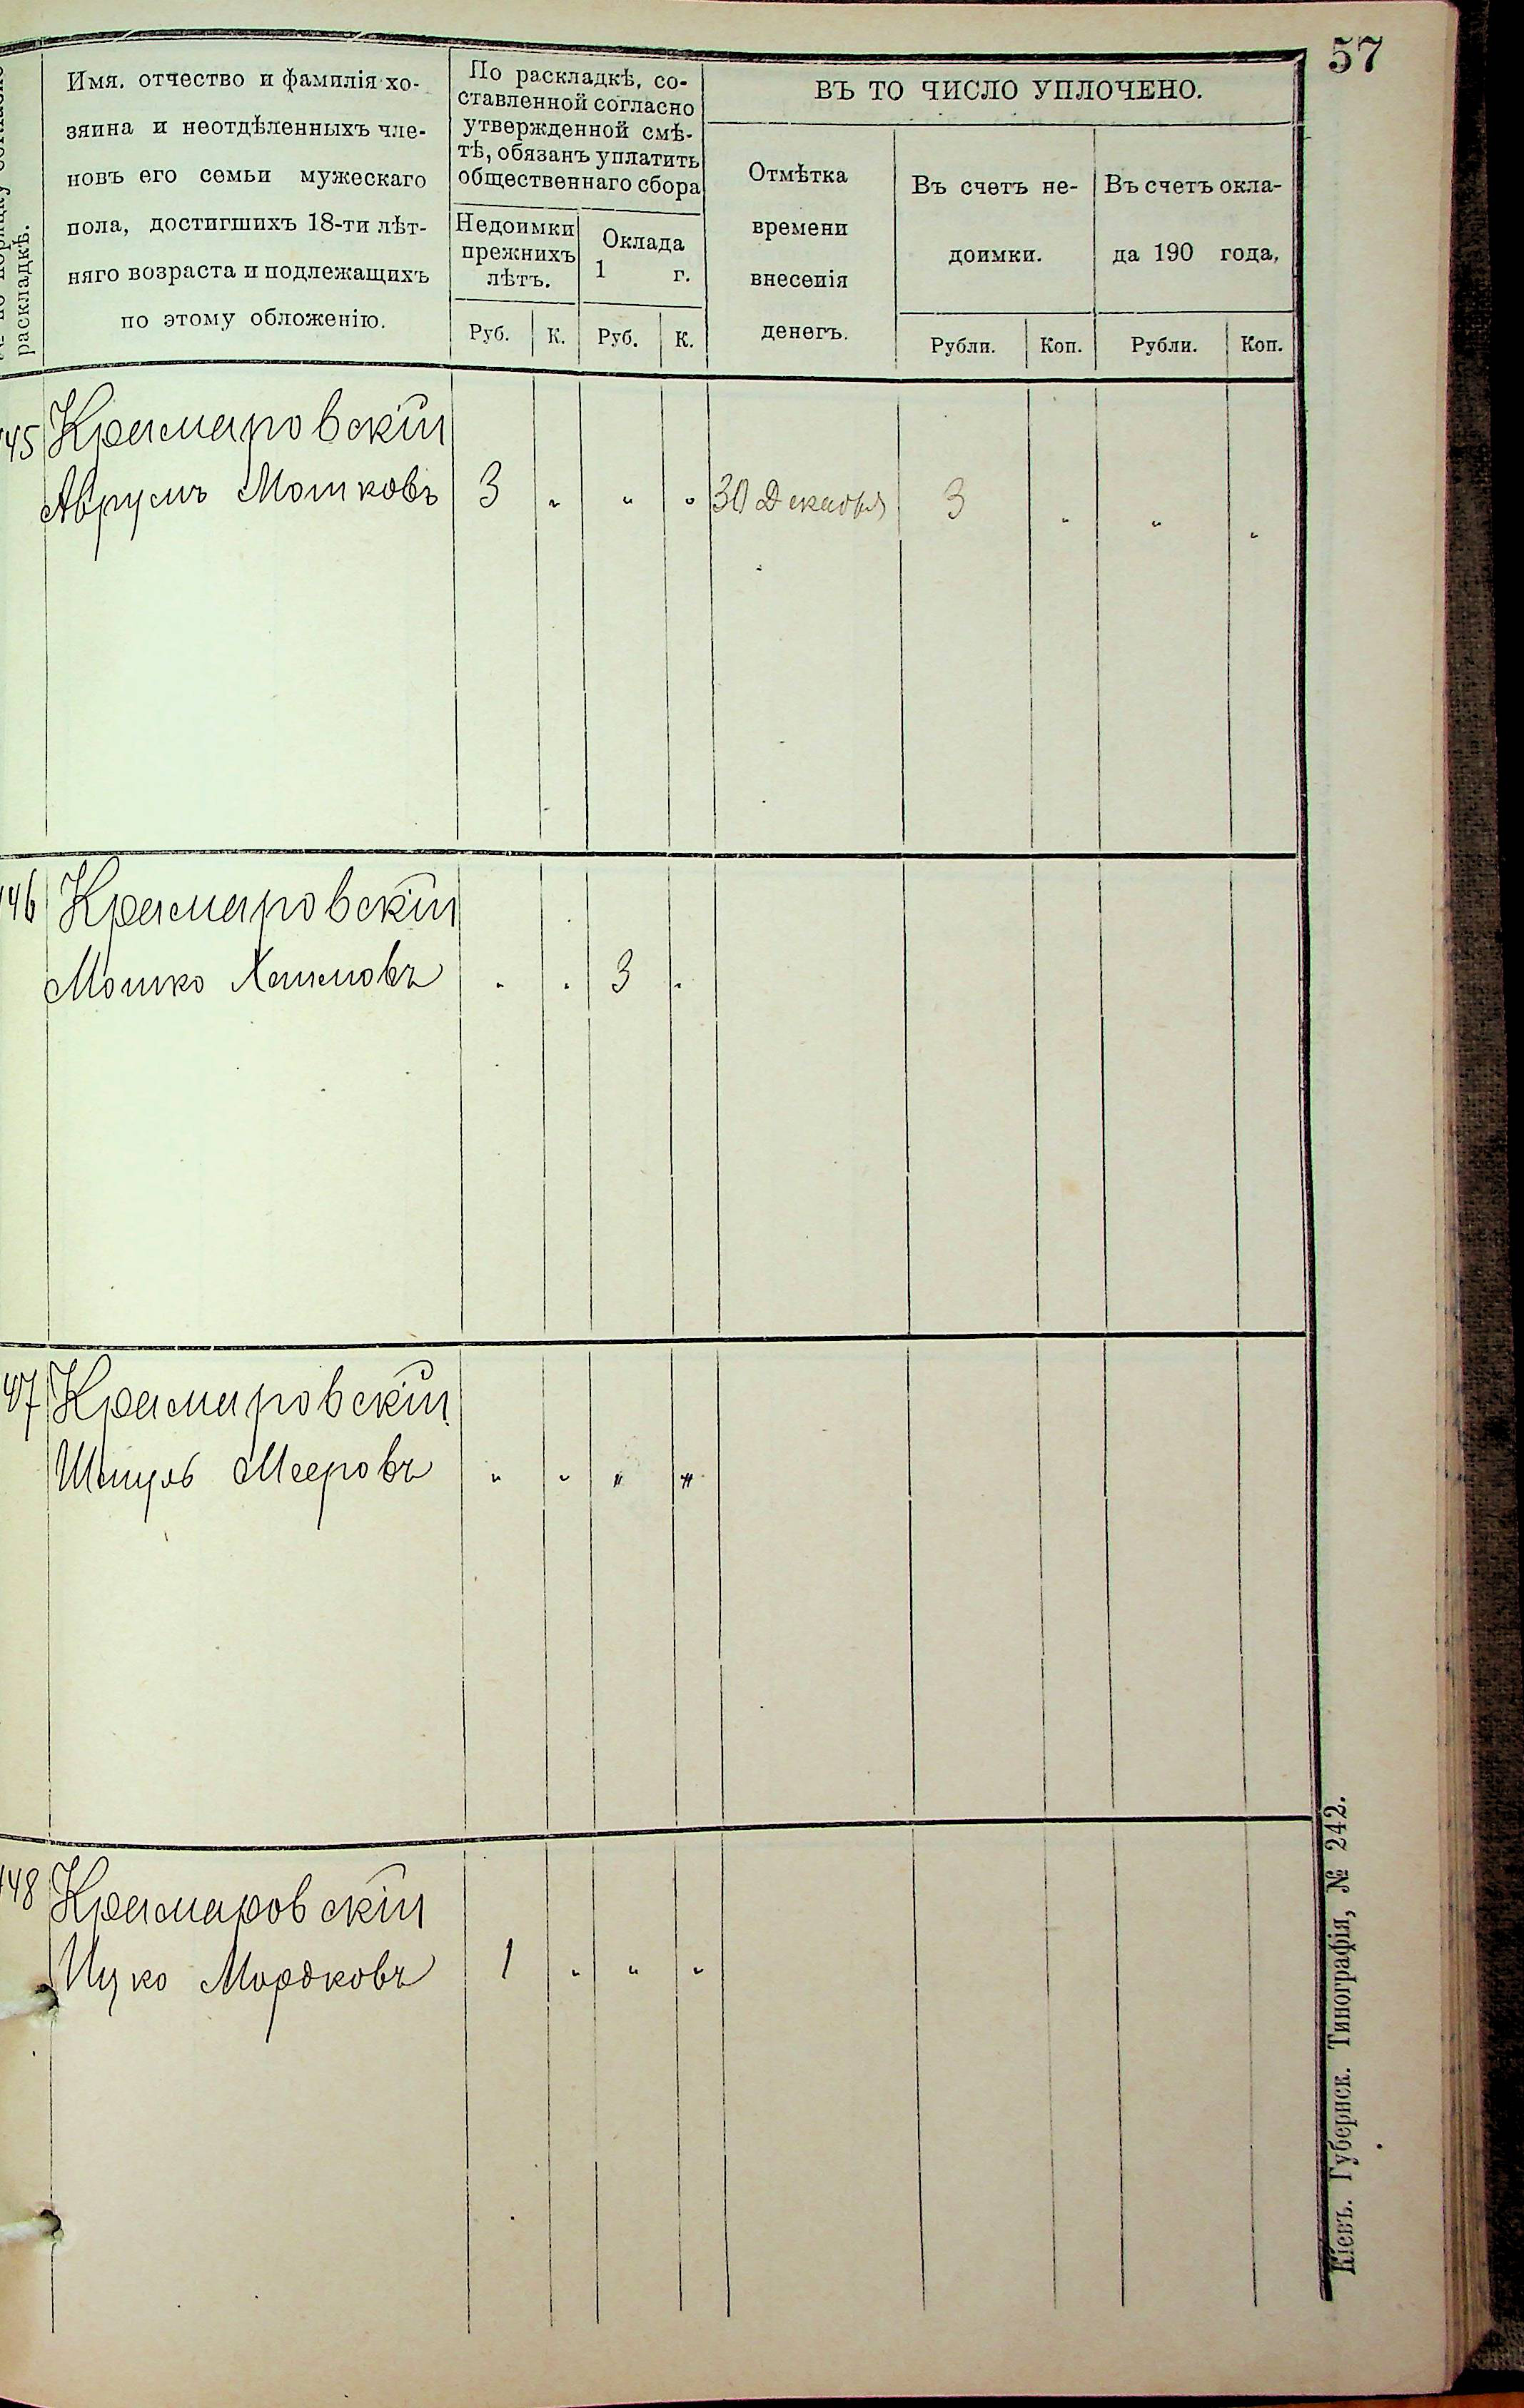 57
раскладкѣ.
Имя, отчество и фамилія хо-
зяина и неотдѣленныхъ чле-
новъ его семьи мужескаго
пола, достигшихъ 18-ти лѣт-
няго возраста и подлежащихъ
по этому обложенію.
По раскладкѣ, со-
ставленной согласно
утвержденной смѣ-
тѣ, обязанъ уплатить
общественнаго сбора
Недоимки
прежнихъ
лѣтъ.
Оклада
1 г.
Руб. К. Руб. К.
ВЪ ТО ЧИСЛО УПЛОЧЕНО.
Отмѣтка
времени
внесенія
денегъ.
Въ счетъ не-
доимки.
Въ счетъ окла-
да 190 года,
Рубли. Коп. Рубли. Коп.
145 Крамаровскій
Аврумъ Мошковъ 3 „ „ „ 30 Декабря 3 „ „ „
146 Крамаровскій
Мошко Хаимовъ „ „ 3 „
47 Крамаровскій
Шмуль Мееровъ „ „ „ „
148 Крамаровскій
Ицко Мордковъ 1 „ „ „
Кіевъ. Губернск. Типографія, № 242.